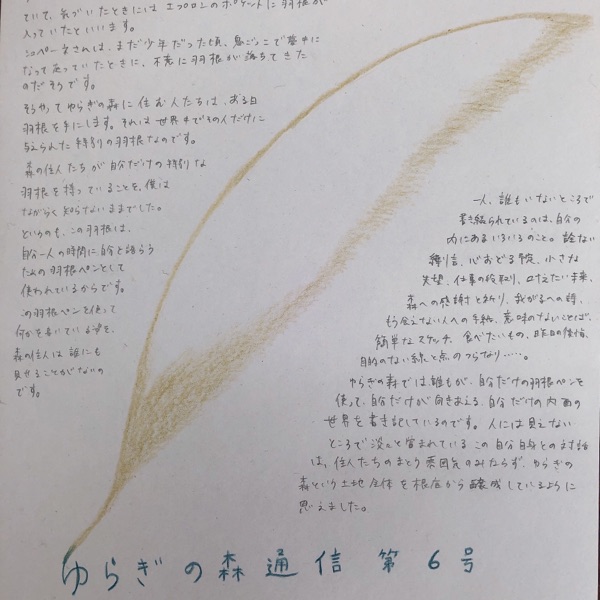 ていて、気づいたときには エプロンのポケットに 羽根が
入っていたといいます。
まだ少年だった頃、鳥ごっこで夢中に
なって走っていたときに、不意に羽根が落ちてきた
のだそうです。
そうやってゆらぎの森に住む人たちは、ある日
羽根を手にします。それは世界中でその人だけに
与えられた特別の羽根なのです。
森の住人たちが自分だけの特別な
羽根を持っていることを、僕は
ながらく知らないままでした。
というのも、この羽根は、
自分一人の時間に自分と語らう
ための羽根ペンとして
使われているからです。
羽根ペンを使って
何かを書いている姿を、
森の住人は誰にも
見せることがないの
です。
一人、誰もいないところで
書き綴られているのは、自分の
内にあるいろいろのこと。詮ない
独り言、心おどる予定、小さな
失望、仕事の段取り、叶えたい未来、
森への感謝と祈り、我がものへの詩、
もう会えない人への手紙、意味のないことば、
簡単なスケッチ、食べたいもの、昨日の後悔、
目的のない線と点のつらなり……。
ゆらぎの森では誰もが、自分だけの羽根ペンを
使って、自分だけが向きあえる、自分だけの内面の
世界を書き記しているのです。人には見えない
ところで淡々と営まれているこの自分自身との対話
は、住人たちのまとう雰囲気のみならず、ゆらぎの
森という土地全体を根底から醸成しているように
思えました。
ゆらぎの森通信 第6号